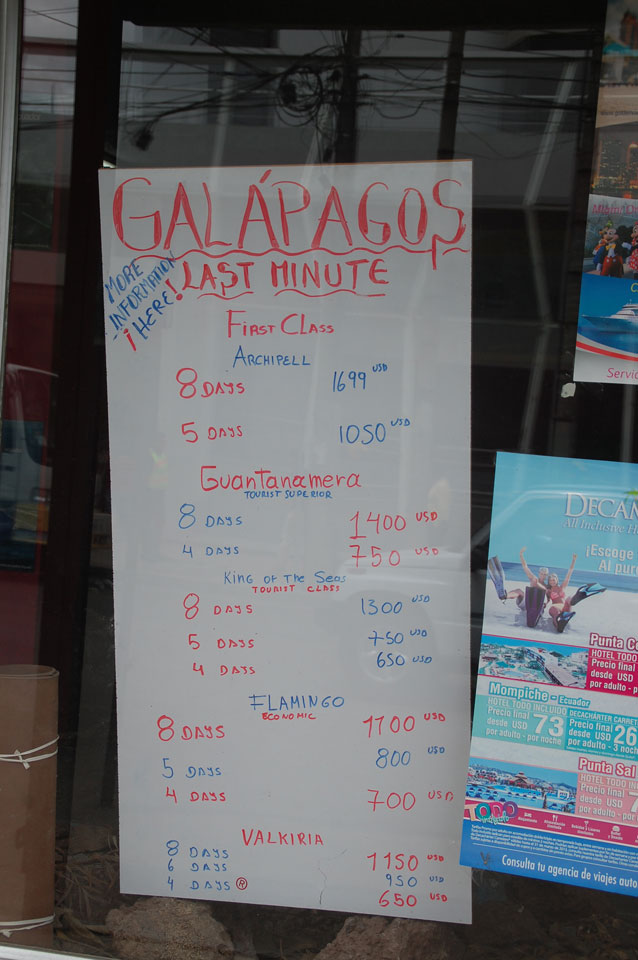 GALÁPAGOS
LAST MINUTE
MORE
INFORMATION
¡HERE!
FIRST CLASS
ARCHIPELL
8 DAYS 1699 USD
5 DAYS 1050 USD
Guantanamera
TOURIST SUPERIOR
8 DAYS 1400 USD
4 DAYS 750 USD
KING OF THE SEAS
TOURIST CLASS
8 DAYS 1300 USD
5 DAYS 750 USD
4 DAYS 650 USD
FLAMINGO
ECONOMIC
8 DAYS 1100 USD
5 DAYS 800 USD
4 DAYS 700 USD
VALKIRIA
8 DAYS 1150 USD
6 DAYS 950 USD
4 DAYS ® 650 USD
Servic
DECAM
All Inclusive H
¡Escoge
Al pur
Punta Ce
HOTEL TODO IN
Precio final
desde USD
por adulto - p
Mompiche - Ecuador
HOTEL TODO INCLUIDO
Precio final
desde USD 73
por adulto - por noche
DECACHÁRTER CARRET
Precio final
desde USD 26
por adulto - 3 noch
Punta Sal
HOTEL TODO INC
Precio final
desde USD
por adulto - por
TODO
Consulta tu agencia de viajes auto